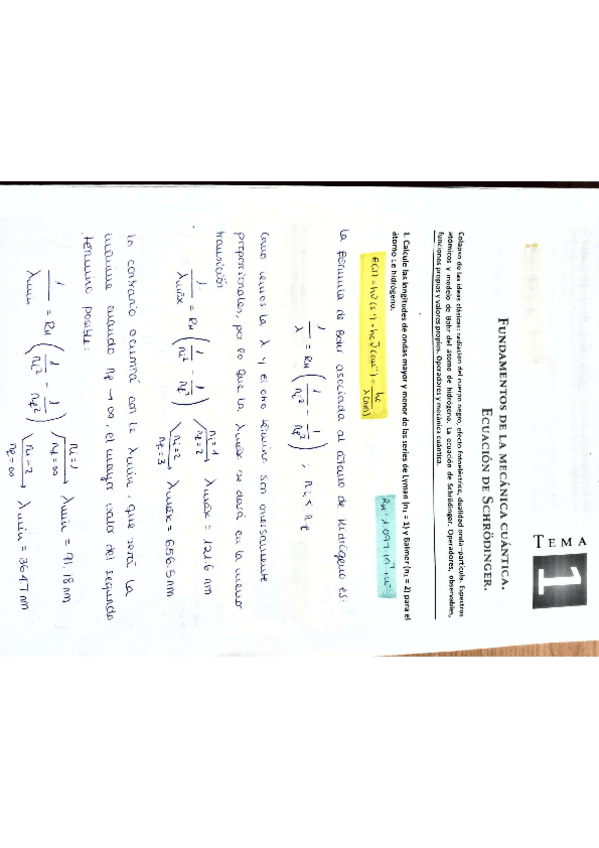 TEMA
1
FUNDAMENTOS DE LA MECÁNICA CUÁNTICA.
ECUACIÓN DE SCHRÖDINGER.
Colapso de las ideas clásicas: radiación del cuerpo negro, efecto fotoeléctrico, dualidad onda-partícula. Espectros
atómicos y modelo de Bohr del átomo de hidrógeno. La ecuación de Schrödinger. Operadores, observables,
funciones propias y valores propios. Operadores y mecánica cuántica.
1. Calcule las longitudes de ondas mayor y menor de las series de Lyman (n₁ = 1) y Balmer (n₁ = 2) para el
átomo de hidrógeno.
E(J) = hν(s⁻¹) = hcν̃(cm⁻¹) = hc/λ(nm)
RH = 1.097·10⁷ m⁻¹
La fórmula de Bohr asociada al átomo de hidrógeno es:
1/λ = RH (1/ni² − 1/nf²) ; ni < nf
Como vemos la λ y el otro término son inversamente
proporcionales, por lo que la λmáx se dará en la menor
transición
1/λmáx = RH (1/ni² − 1/nf²) ni=1 nf=2 → λmáx = 121.6 nm
ni=2 nf=3 → λmáx = 656.5 nm
lo contrario ocurrirá con la λmín, que será la
máxima cuando nf → ∞, el mayor valor del segundo
término posible:
1/λmín = RH (1/ni² − 1/nf²) ni=1 nf=∞ → λmín = 91.18 nm
ni=2 nf=∞ → λmín = 364.7 nm